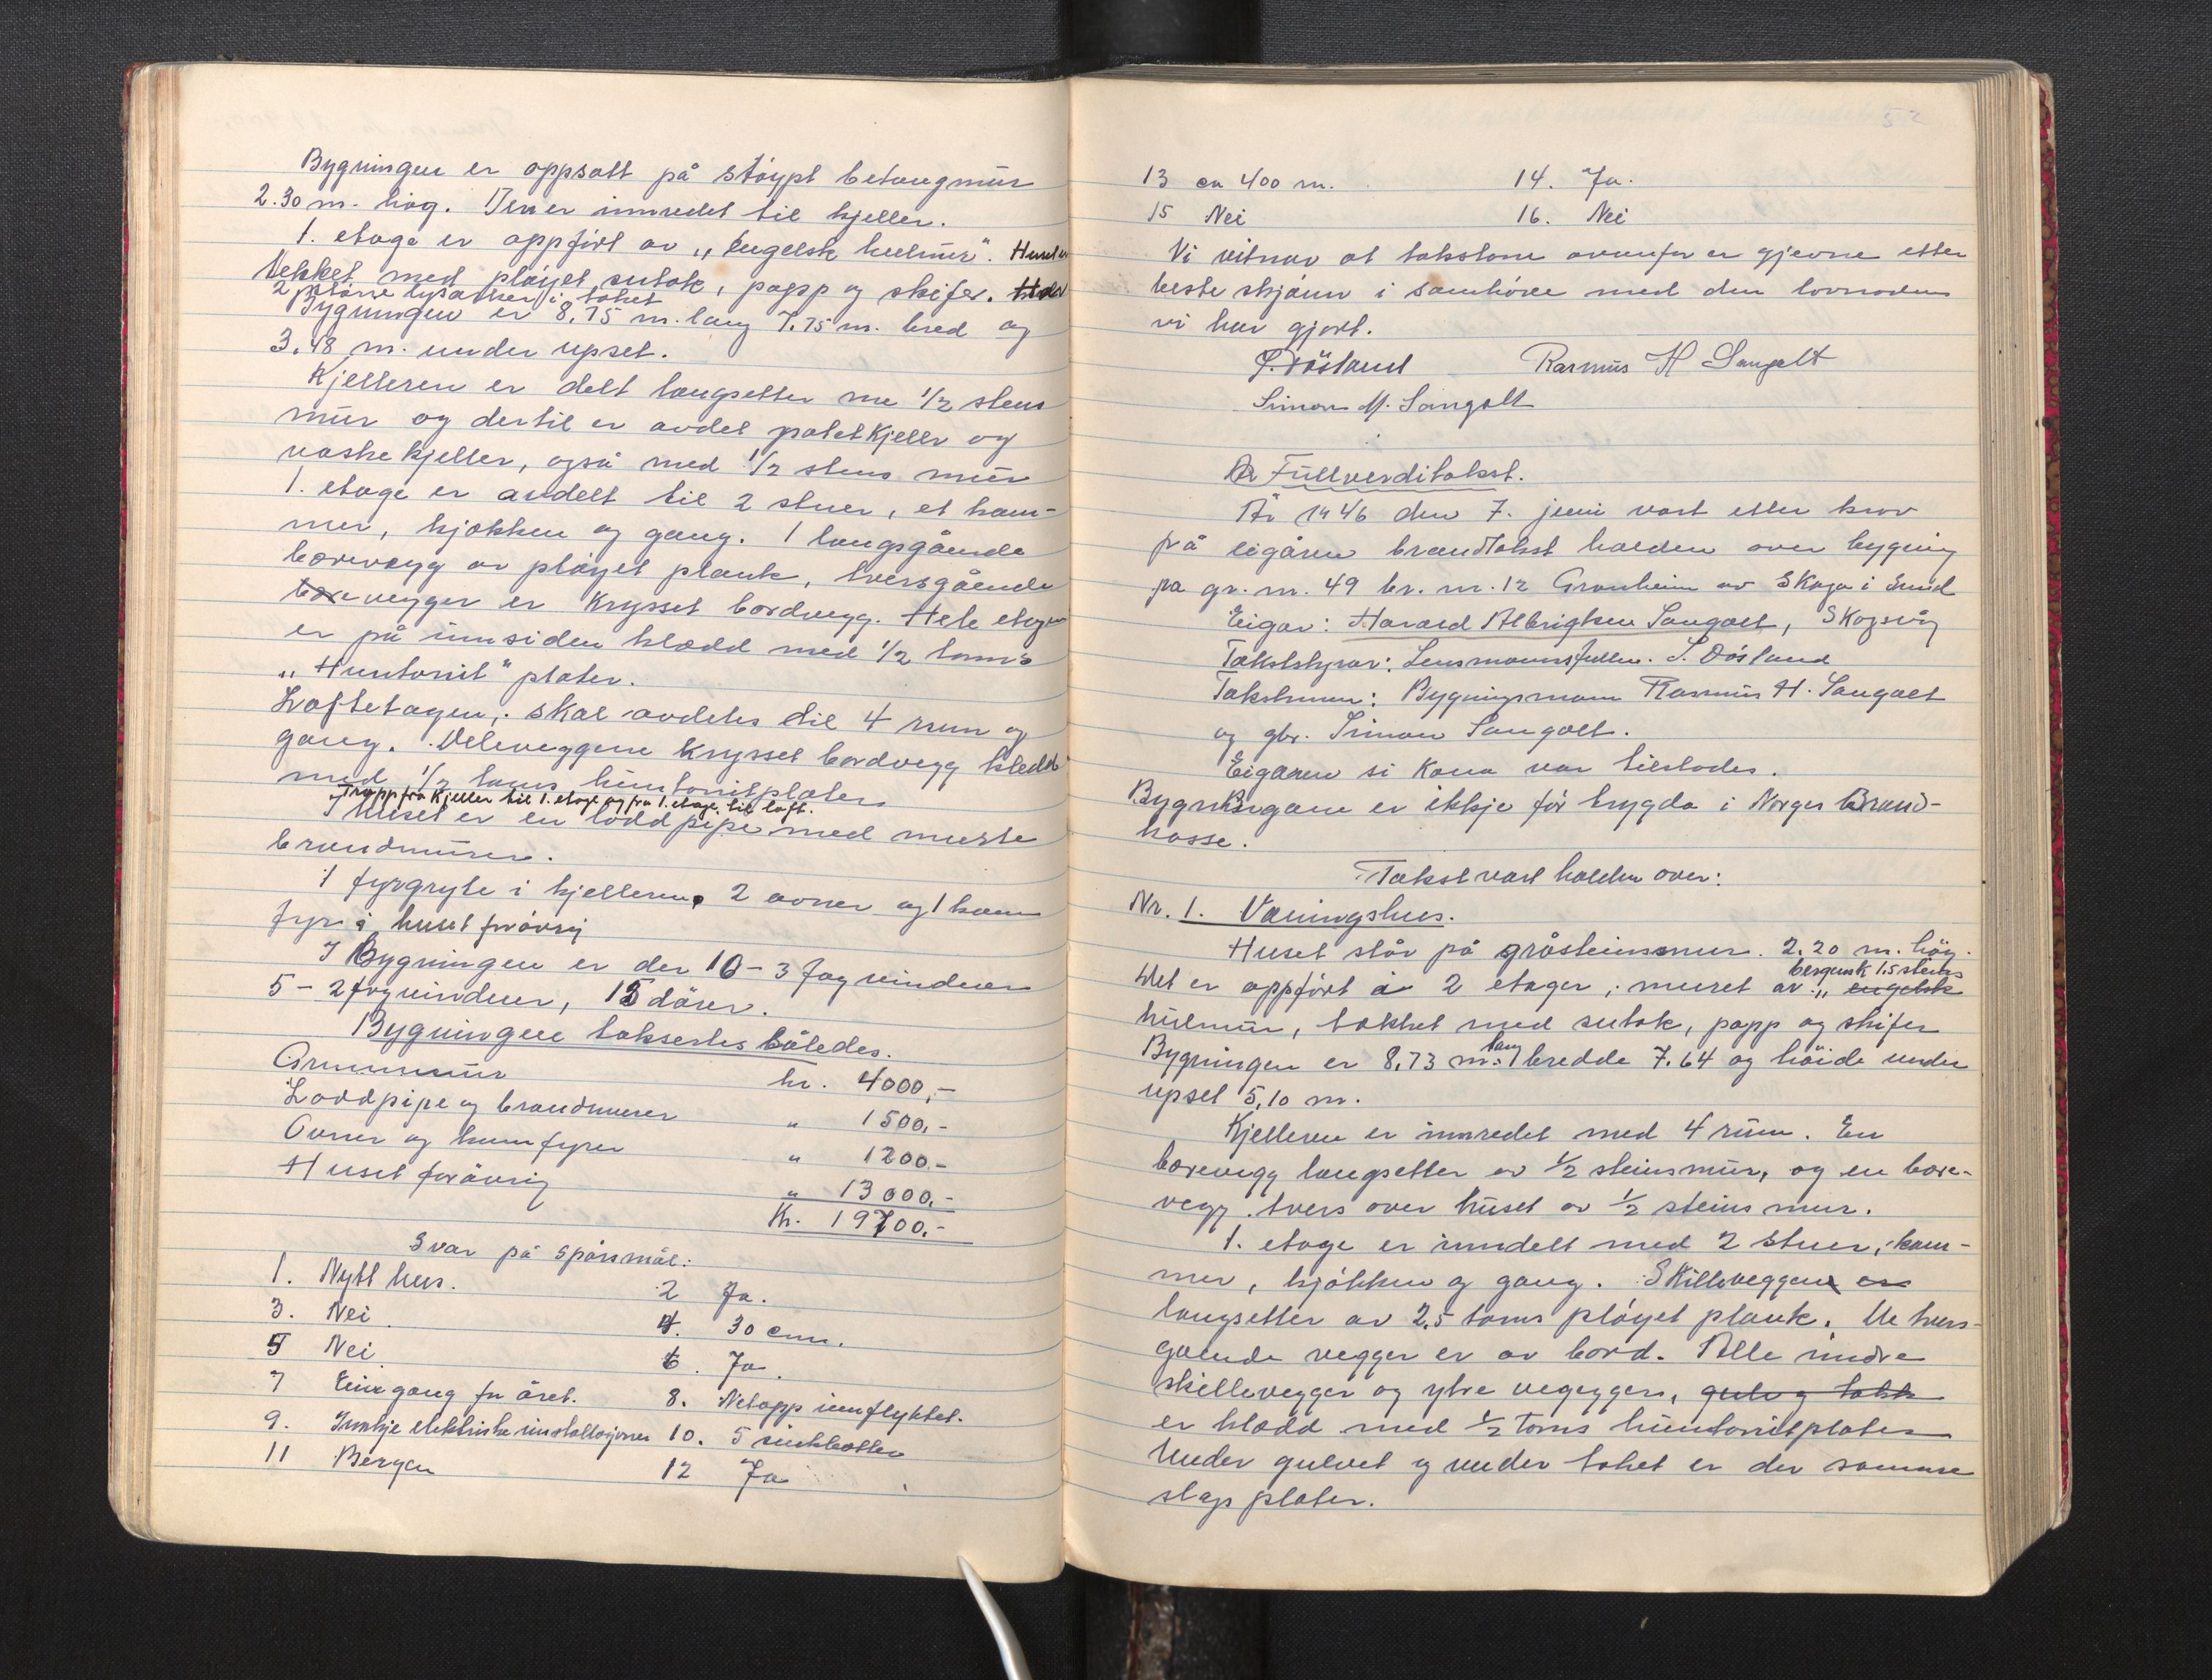 Bygningen er oppsatt på støypt betongmur
2.30 m. høg. Den er innredet til kjeller.
1. etage er oppført av „Engelsk hulmur". Huset er
tekket med pløyet sutak, papp og skifer.
2 større lysarker i taket
Bygningen er 8,75 m. lang 7,75 m. bred og
3,48 m. under upset.
Kjelleren er delt langsetter me 1/2 stens
mur og dertil er avdel potetkjeller og
vaskekjeller, også med 1/2 stens mur
1. etage er avdelt til 2 stuer, et kam-
mer, kjøkken og gang. 1 langsgående
bærevegg av pløyet plank, tversgående
bærevegger er krysset bordvegg. Hele etagen
er på innsiden klædd med 1/2 toms
„Huntonit" plater.
Loftetagen, skal avdeles til 4 rum og
gang. Deleveggene krysset bordvegg kledd
med 1/2 toms huntonitplater
Trapp fra kjeller til 1. etage og fra 1. etage til loft.
I huset er en loddpipe med murte
brandmurer.
1 fyrgryte i kjelleren, 2 ovner og 1 kom
fyr i huset forøvrig
I Bygningen er der 10 - 3 fag vinduer
5 - 2 fag vinduer, 15 dører.
Bygningen takseres således.
Grunnmur kr. 4000,-
Loddpipe og brandmurer " 1500,-
Ovner og komfyrer " 1200,-
Huset forøvrig " 13000,-
Kr. 19700,-
Svar på spørsmål:
1. Nytt hus. 2 Ja.
3. Nei 4. 30 cm.
5 Nei 6. Ja.
7 Ein gang for året. 8. Netopp innflyttet.
9. Innkje elektriske installasjoner 10. 5 sinkbøtter
11 Bergen 12 Ja
52
13 ca 400 m. 14. Ja.
15 Nei 16. Nei
Vi vitnar at takstane ovanfor er gjevne etter
beste skjønn i samhøve med den lovnaden
vi har gjort.
S. Døsland Rasmus H Sangolt
Simon M. Sangolt
Fullverditakst.
År 1946 den 7. juni vart etter krav
frå eigaren brandtakst halden over bygning
på gr. nr. 49 br. nr. 12 Granheim av Skoga i Sund
Eigar: Harald Albrigtsen Sangolt, Skogsvåg
Takststyrar: Lensmannsfullm. S. Døsland
Takstmenn: Bygningsmann Rasmus H. Sangolt
og gbr. Simon Sangolt.
Eigaren si kona var tilstades.
Bygningane er ikkje før trygda i Norges Brand-
kasse.
Takst vart halden over:
Nr. 1. Våningshus.
Huset står på gråsteinsmur. 2.20 m. høg.
bergensk 1,5 steins
Det er oppført i 2 etager, muret av „engelsk
hulmur, tekket med sutak, papp og skifer
Bygningen er 8,73 m. lang bredde 7.64 og høide under
upset 5,10 m.
Kjelleren er innredet med 4 rum. En
bærevegg langsetter av 1/2 steinsmur, og en bære-
vegg tvers over huset av 1/2 steins mur.
1. etage er inndelt med 2 stuer, kam-
mer, kjøkken og gang. Skilleveggen er
langsetter av 2,5 toms pløyet plank. De tvers-
gående vegger er av bord. Alle indre
skillevegger og ytre vegger, gulv og takk
er klædd med 1/2 toms huntonitplater
Under gulvet og under taket er der samme
slags plater.